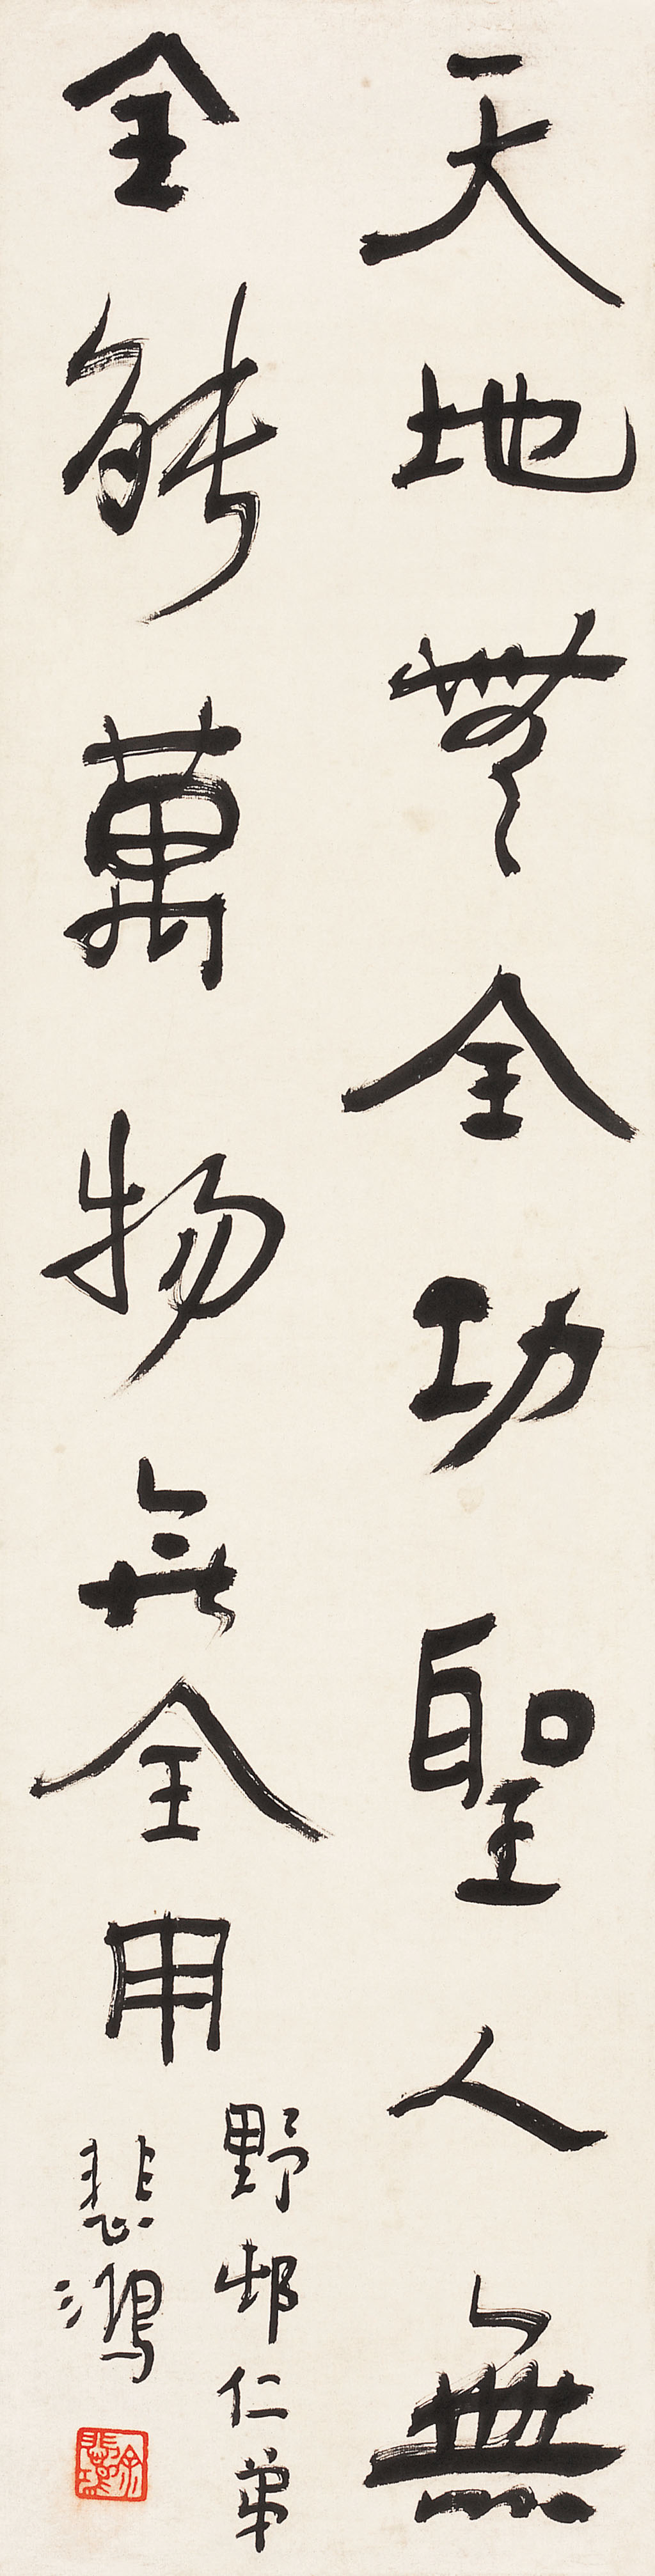 天地無全功聖人無
全能萬物無全用
野邨仁弟
悲鴻
徐悲鴻